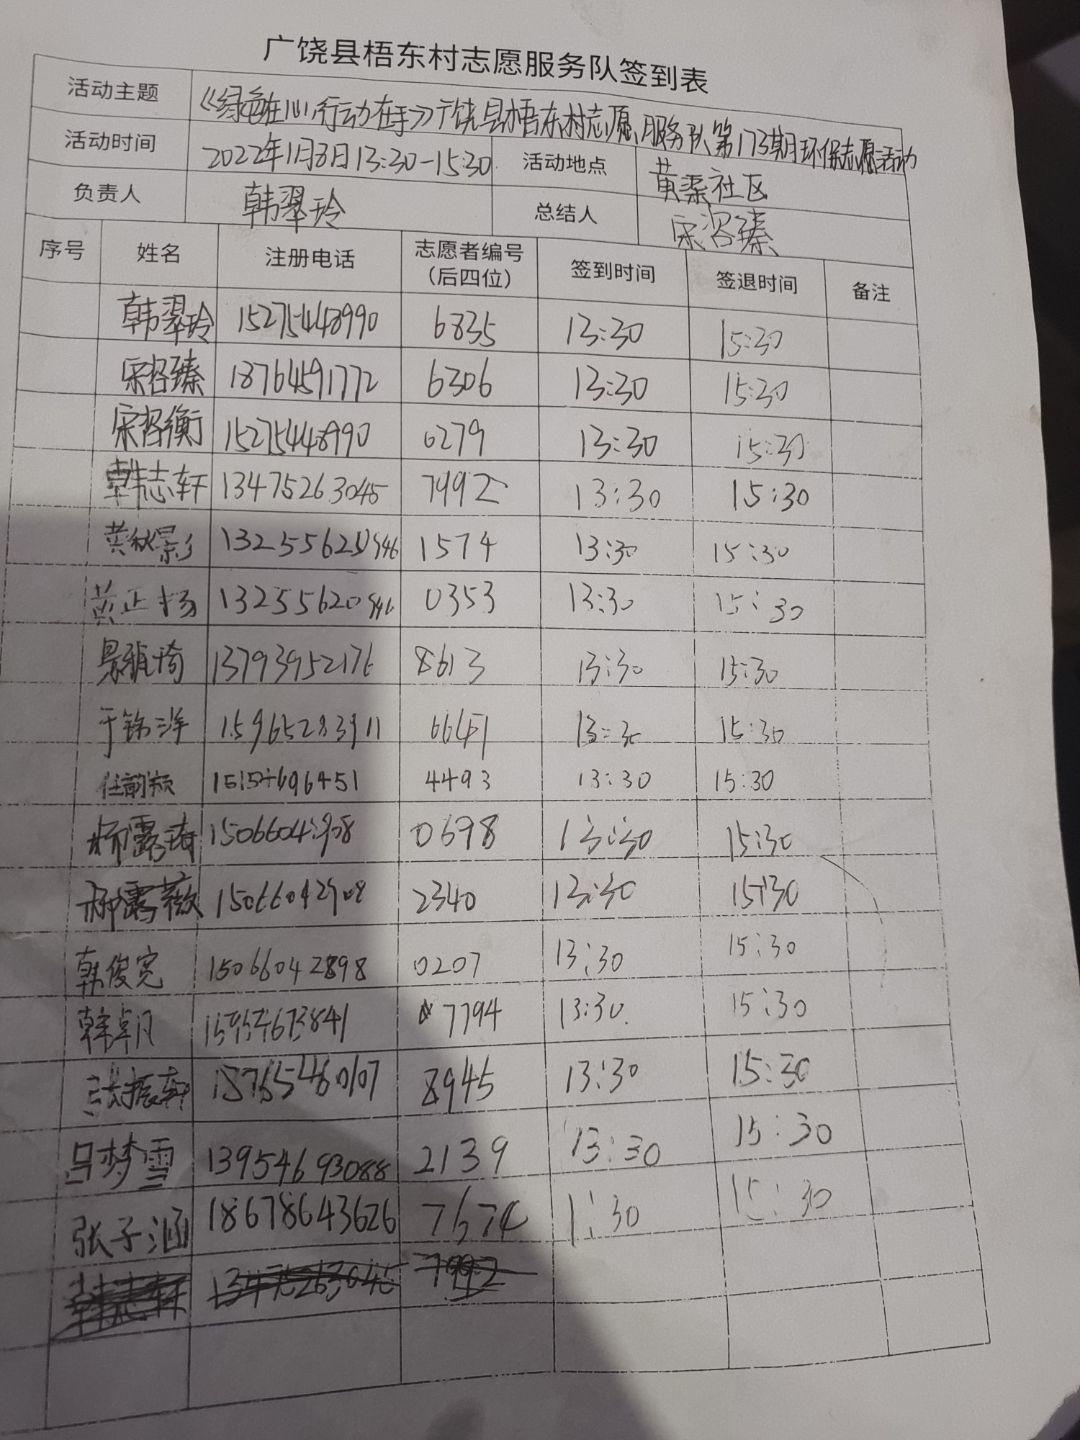 广饶县梧东村志愿服务队签到表
活动主题 《绿色在心 行动在手》广饶县梧东村志愿服务队第173期环保志愿活动
活动时间 2022年1月3日13:30-15:30 活动地点 黄栾社区
负责人 韩翠玲 总结人 宋沼臻
序号 姓名 注册电话 志愿者编号（后四位） 签到时间 签退时间 备注
韩翠玲 15275448990 6835 13:30 15:30
18764591772 6306 13:30 15:30
15275448990 0279 13:30 15:30
韩志轩 13475263045 7992 13:30 15:30
黄秋影 1574 13:30 15:30
黄正扬 13255620946 0353 13:30 15:30
13793952176 8613 13:30 15:30
于锦洋 15965283911 13:30 15:30
任韵颖 4493 13:30 15:30
柳露琦 0698 13:30 15:30
柳露薇 15066042908 2340 13:30 15:30
韩俊宽 15066042898 0207 13:30 15:30
韩卓凡 15954673841 7794 13:30 15:30
张振轩 18765460107 8945 13:30 15:30
吕梦雪 13954693088 2139 13:30 15:30
张子涵 18678643626 7674 1:30 15:30
韩志轩 13475263045 7992